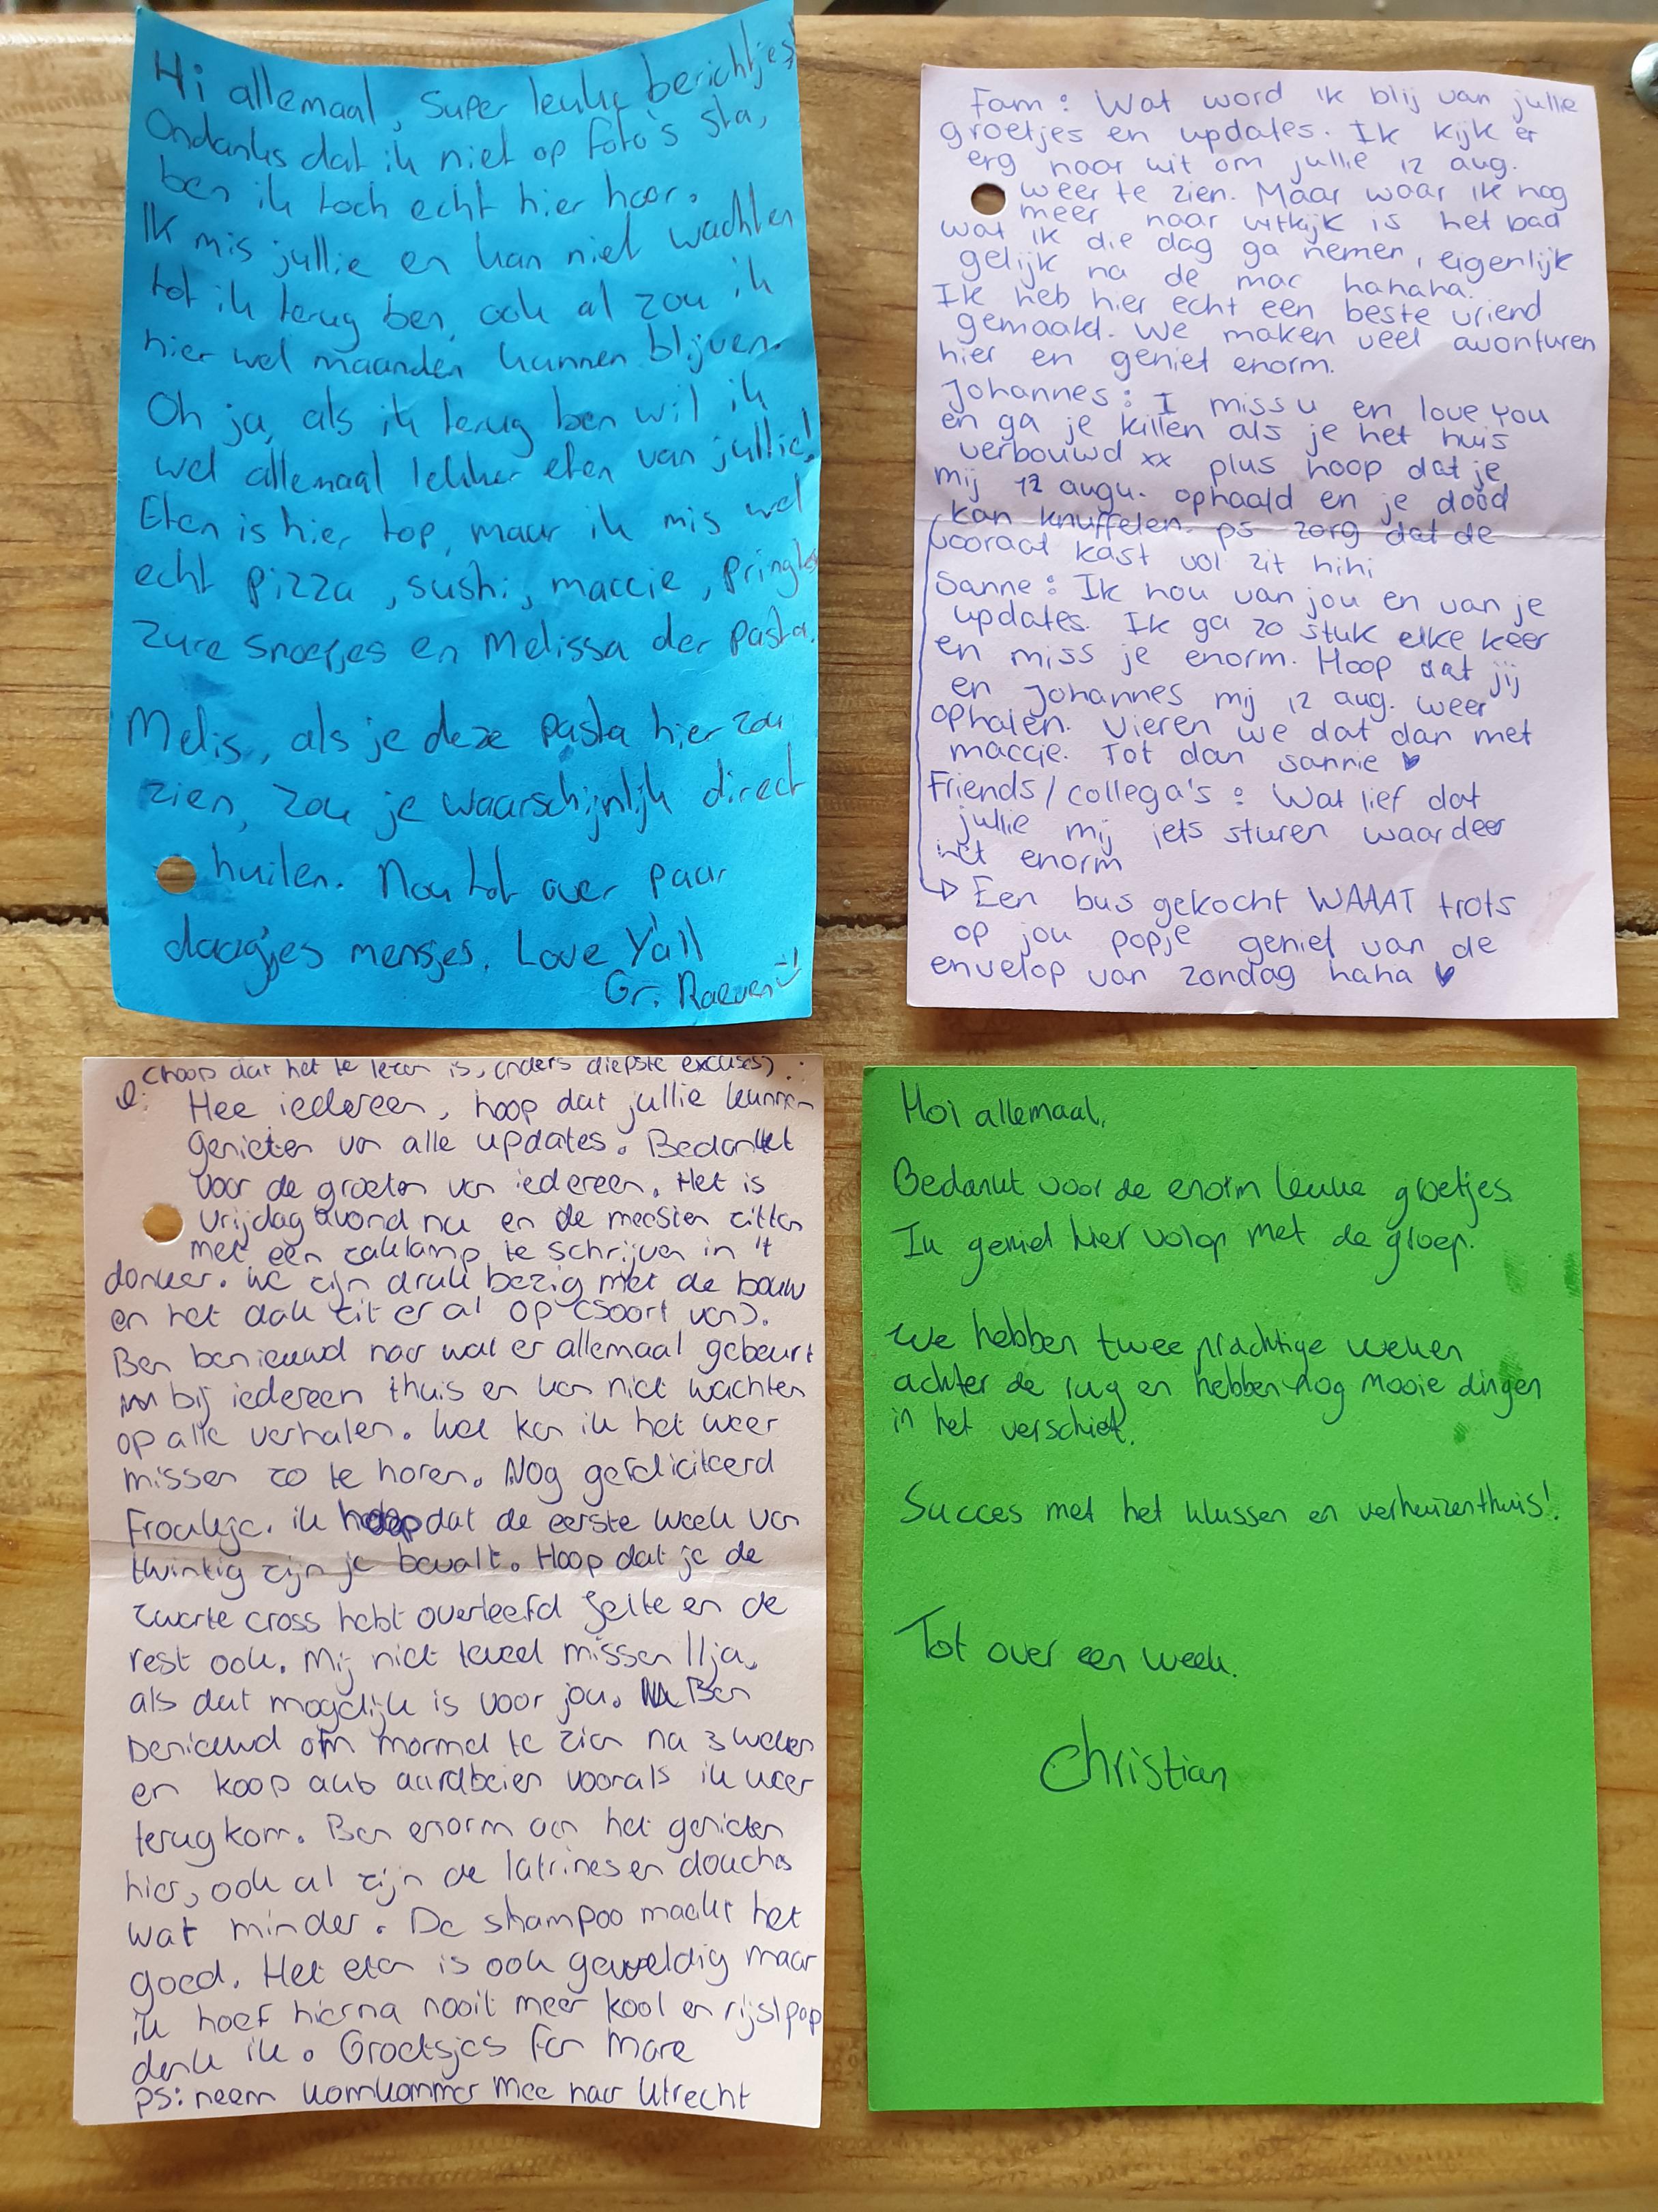 Hi allemaal, super leuke berichtjes
Ondanks dat ik niet op foto's sta,
ben ik toch echt hier hoor.
Ik mis jullie en kan niet wachten
tot ik terug ben, ook al zou ik
hier wel maanden kunnen blijven.
Oh ja, als ik terug ben wil ik
wel allemaal lekker eten van jullie!
Eten is hier top, maar ik mis wel
echt pizza, sushi, maccie, pringles
zure snoepjes en Melissa der pasta.
Melis, als je deze pasta hier zou
zien, zou je waarschijnlijk direct
huilen. Nou tot over paar
daagjes mensjes. Love Y'all
Gr. Raeven
Fam: Wat word ik blij van jullie
groetjes en updates. Ik kijk er
erg naar uit om jullie 12 aug.
weer te zien. Maar waar ik nog
meer naar uitkijk is het bad
wat ik die dag ga nemen, eigenlijk
gelijk na de mac hahaha.
Ik heb hier echt een beste vriend
gemaakt. We maken veel avonturen
hier en geniet enorm.
Johannes: I miss u en love you
en ga je killen als je het huis
verbouwd xx plus hoop dat je
mij 12 augu. ophaald en je dood
kan knuffelen. ps zorg dat de
vooraat kast vol zit hihi
Sanne: Ik hou van jou en van je
updates. Ik ga zo stuk elke keer
en miss je enorm. Hoop dat jij
en Johannes mij 12 aug. weer
ophalen. Vieren we dat dan met
maccie. Tot dan sannie ♥
Friends/collega's: Wat lief dat
jullie mij iets sturen waardeer
het enorm
↳ Een bus gekocht WAAAT trots
op jou popje geniet van de
envelop van zondag haha ♥
(hoop dat het te lezen is, anders diepste excuses)
Hee iedereen, hoop dat jullie kunnen
genieten van alle updates. Bedankt
voor de groeten van iedereen. Het is
vrijdagavond nu en de meesten zitten
met een zaklamp te schrijven in 't
donker. We zijn druk bezig met de bouw
en het dak zit er al op (soort van).
Ben benieuwd naar wat er allemaal gebeurt
bij iedereen thuis en kan niet wachten
op alle verhalen. Wat kan ik het weer
missen zo te horen. Nog gefeliciteerd
Froukje. ik hoop dat de eerste week van
twintig zijn je bevalt. Hoop dat je de
zwarte cross hebt overleefd Jelte en de
rest ook. Mij niet teveel missen Ilja,
als dat mogelijk is voor jou. Ben
benieuwd om mormel te zien na 3 weken
en koop aub aardbeien voorals ik weer
terug kom. Ben enorm aan het genieten
hier, ook al zijn de latrines en douches
wat minder. De shampoo maakt het
goed. Het eten is ook geweldig maar
ik hoef hierna nooit meer kool en rijstpap
denk ik. Groetsjes fan Mare
PS: neem komkommer mee naar Utrecht
Hoi allemaal,
Bedankt voor de enorm leuke groetjes.
Ik geniet hier volop met de groep.
We hebben twee prachtige weken
achter de rug en hebben nog mooie dingen
in het verschiet.
Succes met het klussen en verhuizen thuis!
Tot over een week.
Christian